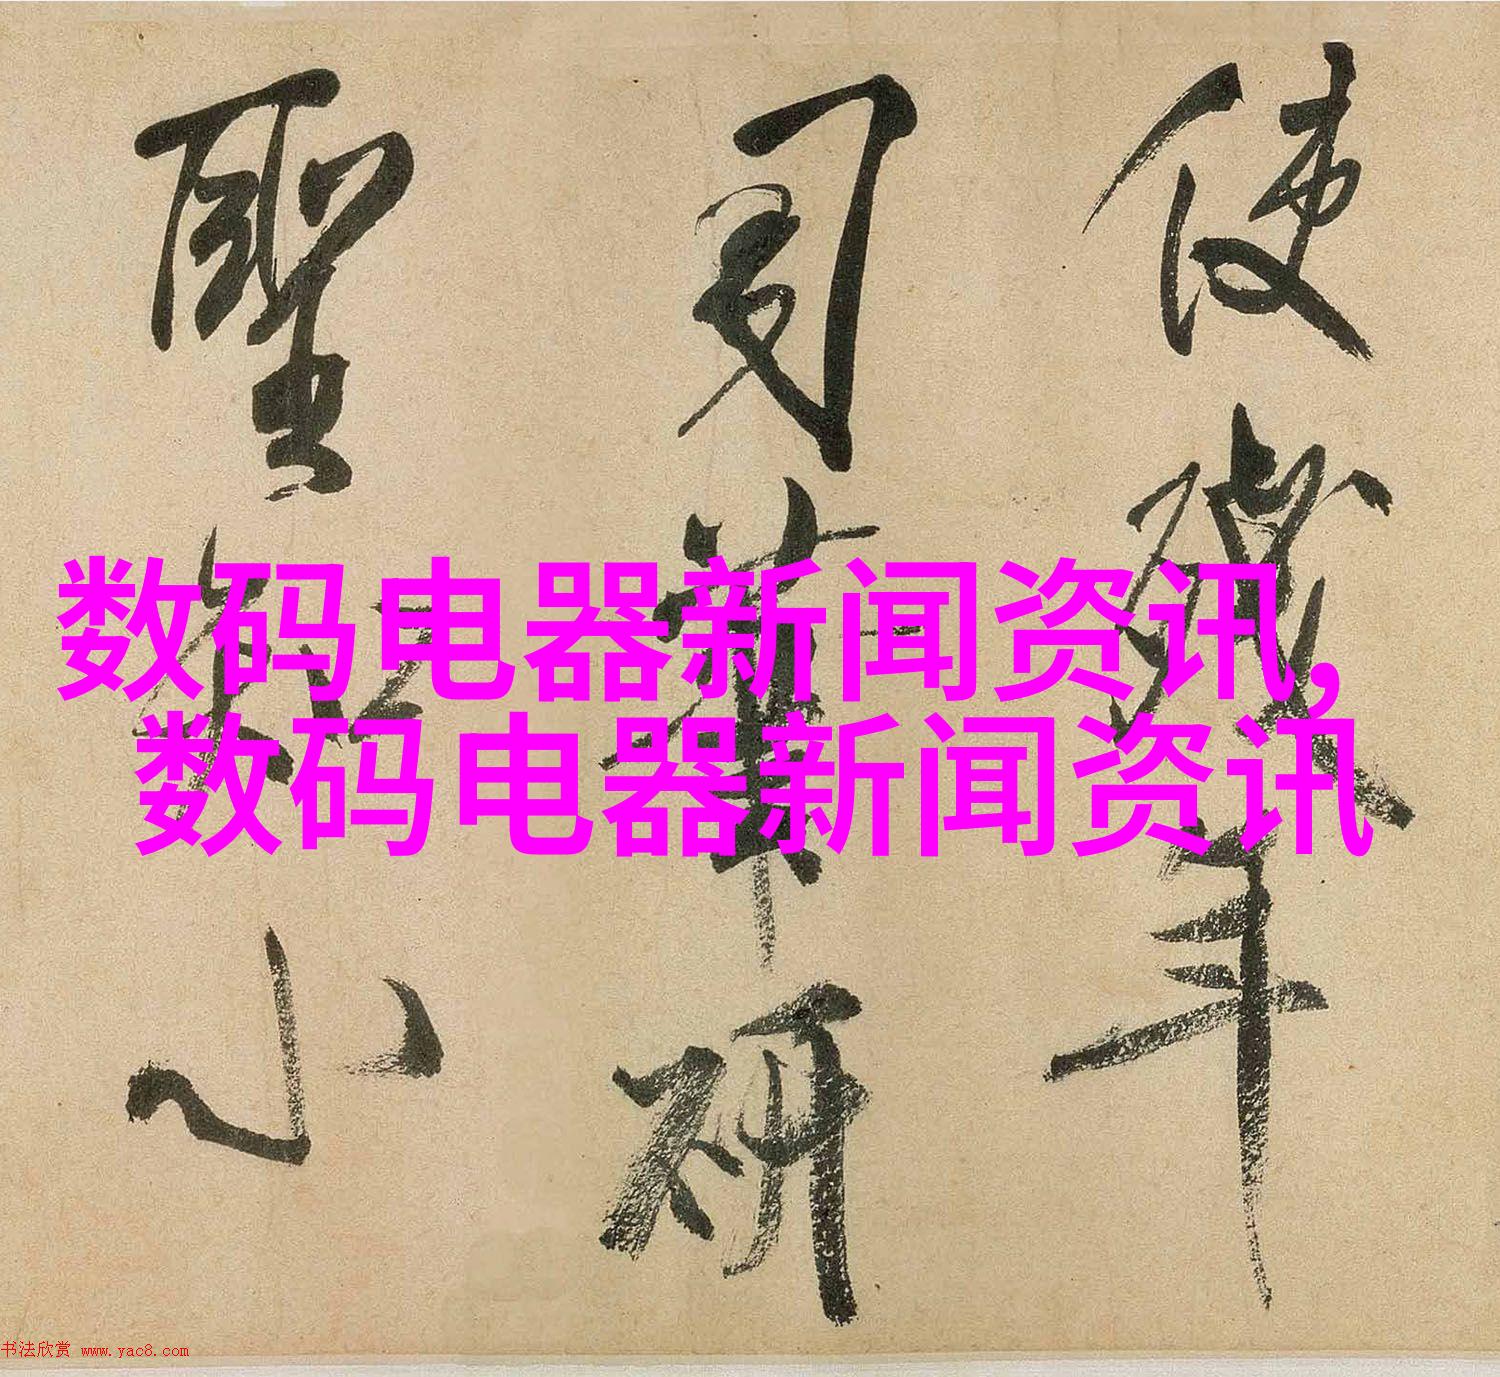 使殘年
司筆研
聖知小
数码电器新闻资讯,
数码电器新闻资讯
书法欣赏 www.yac8.com